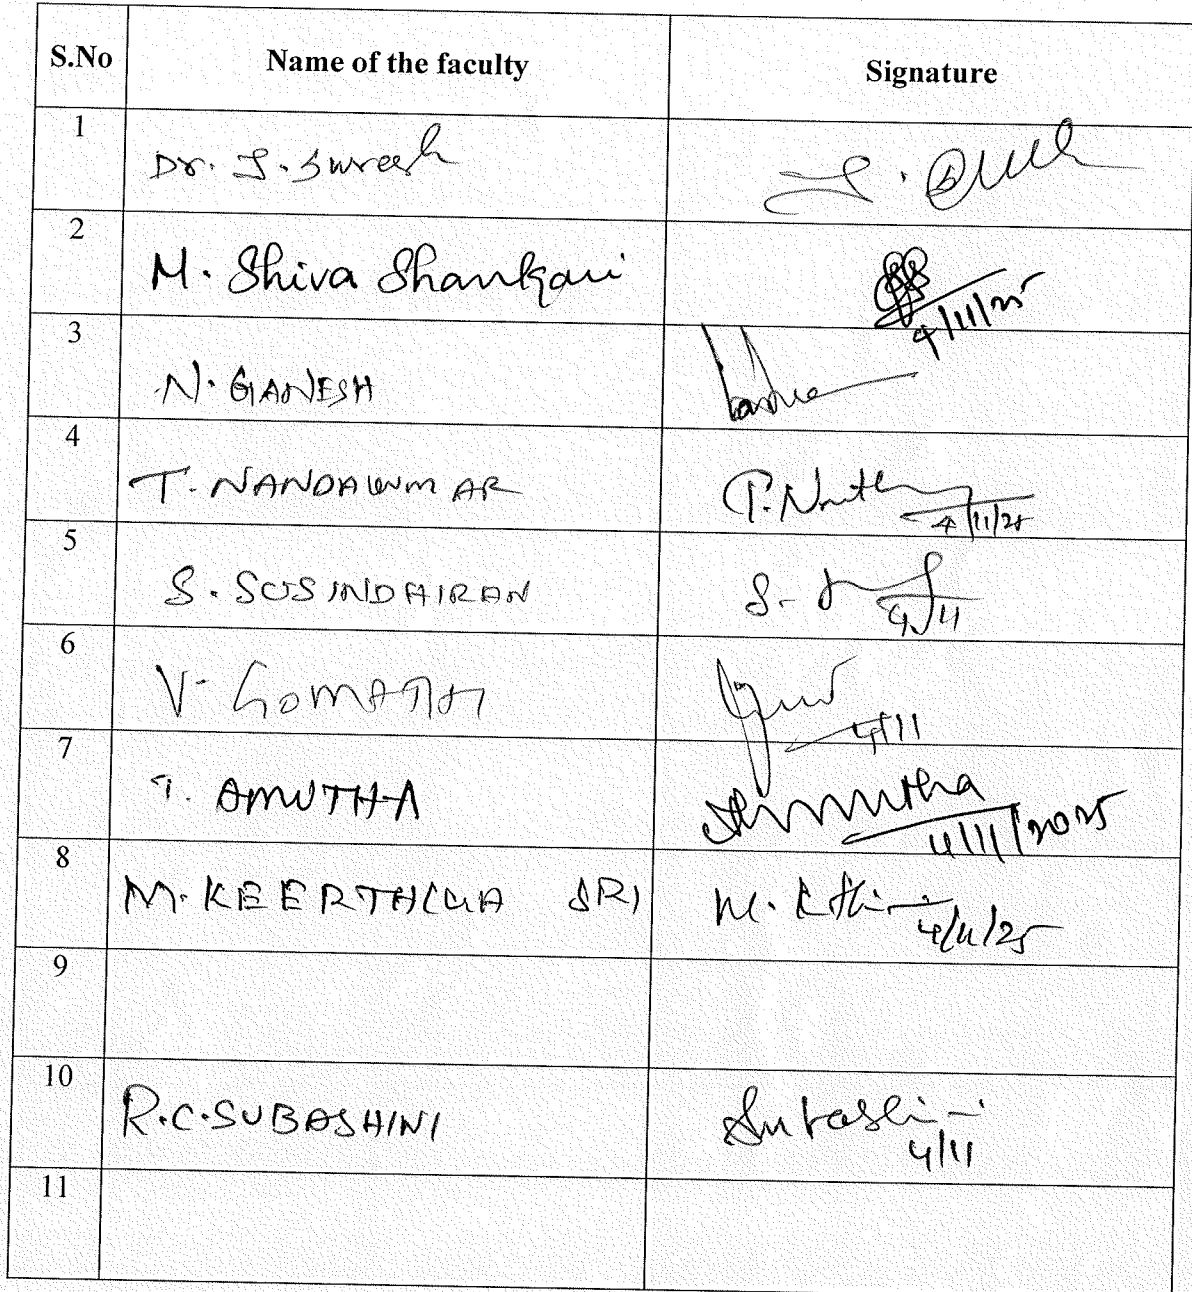 S.No Name of the faculty Signature
1 Dr. J. Suresh
2 M. Shiva Shankari 4/11/25
3 N. GANESH
4 T. NANDAKUMAR T. Nanth 4/11/25
5 S. SUSINDAIRAN S- 4/11
6 V. GOMATHI 4/11
7 T. AMUTHA Amutha 4/11/2025
8 M. KEERTHIGA SRI M. 4/11/25
9
10 R.C.SUBASHINI Subashini 4/11
11